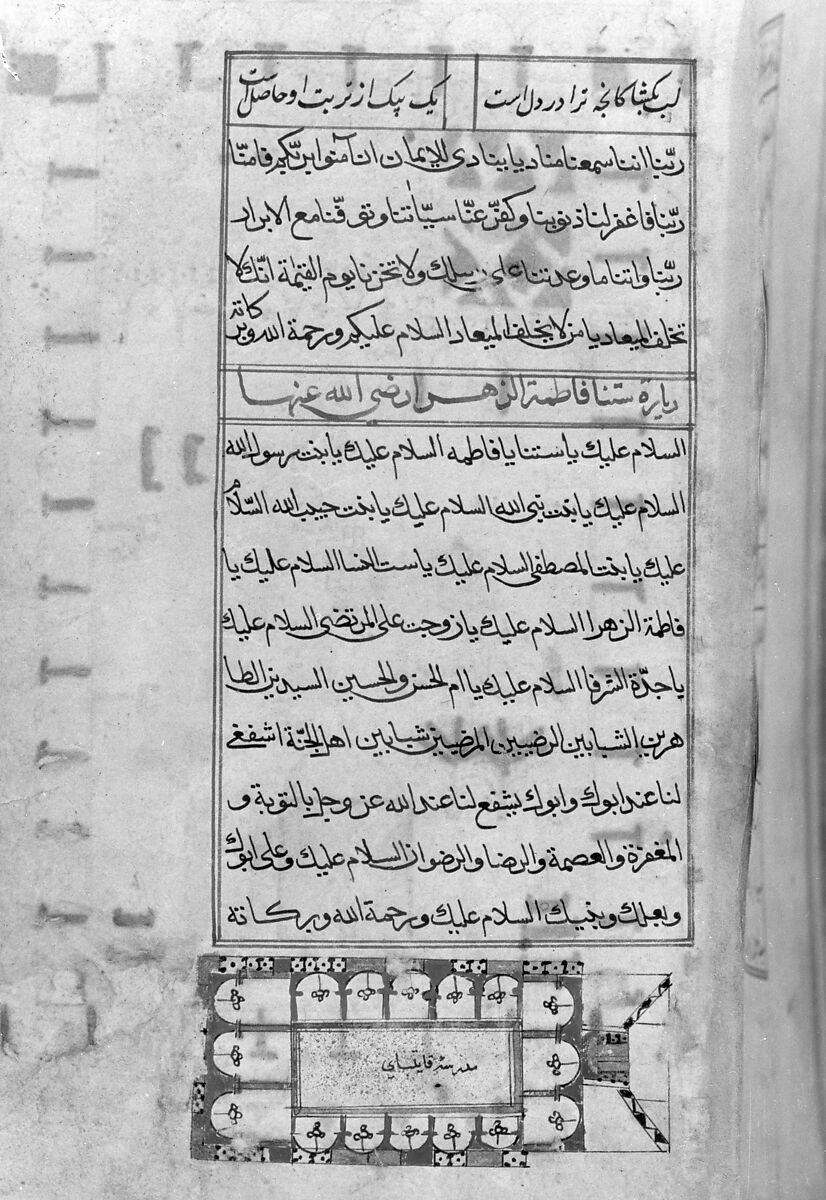 لب بکشا کانچه ترا در دل است
یک بیک از تربت او حاصل است
ربّنا اننا سمعنا مناديا ينادى للايمان ان آمنوا بربّكم فامنّا
ربّنا فاغفر لنا ذنوبنا وكفرّ عنّا سيّاٰتنا وتوفّنا مع الابرار
ربّنا واتنا ما وعدتنا على رسلك ولا تخزنا يوم القيٰمة انّك لا
تخلف الميعاد يا من لا يخلف الميعاد السلام عليكم ورحمة الله وبركاته
زيارة ستنا فاطمة الزهرا رضى الله عنها
السلام عليك يا ستنا يا فاطمه السلام عليك يا بنت رسول الله
السلام عليك يا بنت نبى الله السلام عليك يا بنت حبيب الله السّلام
عليك يا بنت المصطفى السلام عليك يا ست النسا السلام عليك يا
فاطمة الزهرا السلام عليك يا زوجت على المرتضى السلام عليك
يا جدّة الشرفا السلام عليك يا ام الحسن والحسين السيدين الطا
هرين الشبابين الرضيين المرضيين شبابين اهل الجنّة اشفعى
لنا عند ابوك وابوك يشفع لنا عند الله عز وجل بالتوبة و
المغفرة والعصمة والرضا والرضوان السلام عليك وعلى ابوك
وبعلك وبنيك السلام عليك ورحمة الله وبركاته
مدرسه قايتباى